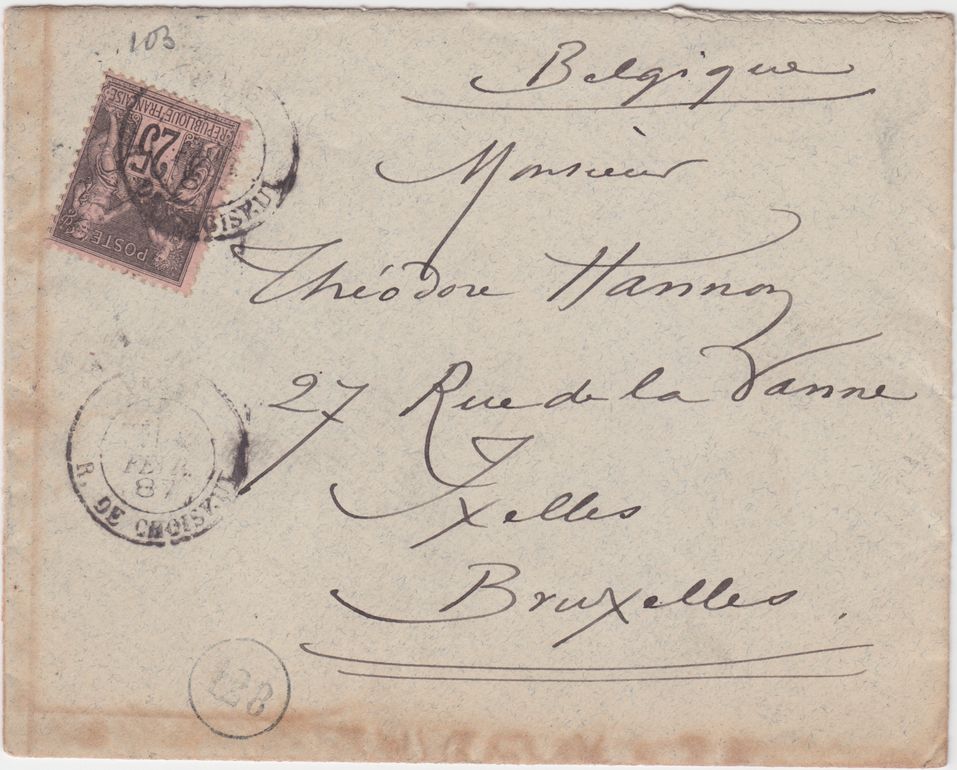 103
Belgique
Monsieur
Théodore Hannon
27 Rue de la Vanne
Ixelles
Bruxelles.
REPUBLIQUE FRANÇAISE
25
POSTES
R. DE CHOISEUL
FEVR.
87
R. DE CHOISEUL
128